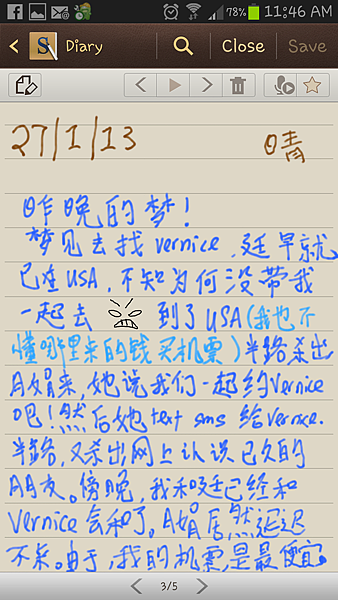 78% 11:46 AM
S Diary Close Save
27/1/13 晴
昨晚的梦!
梦见去找 vernice,廷早就
已在USA,不知为何没带我
一起去 到了USA(我也不
懂哪里来的钱买机票)半路杀出
月娟来,她说我们一起约Vernice
吧!然后她text sms 给Vernice.
半路,又杀出网上认识已久的
朋友。傍晚,我和廷已经和
Vernice会和了。月娟居然迟迟
不来。由于,我的机票,是最便宜
3/5